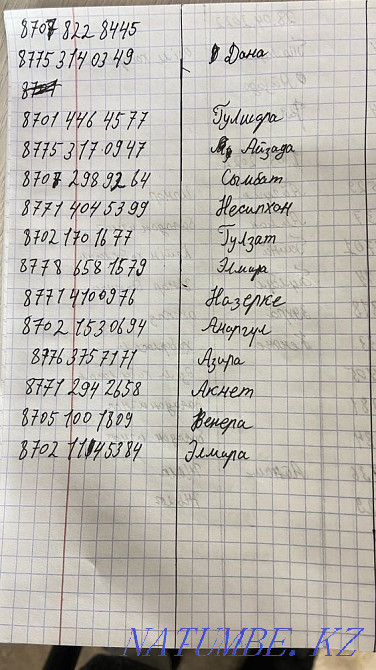 8707 822 8445
8775 314 03 49 Дана
8701 446 45 77 Гулшара
8775 317 0947 Айзада
8707 298 92 64 Сымбат
8771 404 5399 Несипхон
8702 170 16 77 Гулзат
8778 658 1579 Элмира
8771 4100976 Назерке
8702 1530694 Анаргул
8776 375 71 71 Азира
8771 294 2658 Акнет
8705 100 1809 Венера
8702 1145384 Элмира
NATUMBE.KZ